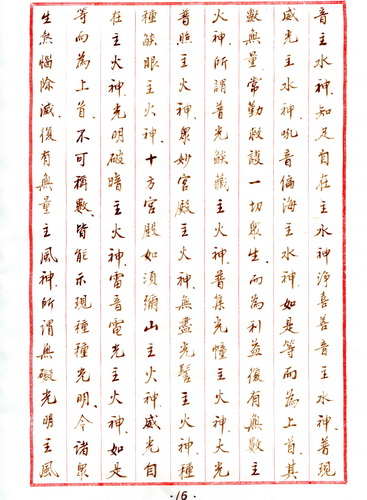 音主水神、知足自在主水神、淨喜善音主水神、普現
威光主水神、吼音徧海主水神、如是等而為上首、其
數無量、常勤救護一切眾生、而為利益、復有無數主
火神、所謂普光燄藏主火神、普集光幢主火神、大光
普照主火神、眾妙宮殿主火神、無盡光髻主火神、種
種燄眼主火神、十方宮殿如須彌山主火神、威光自
在主火神、光明破暗主火神、雷音電光主火神、如是
等而為上首、不可稱數、皆能示現種種光明、令諸眾
生熱惱除滅、復有無量主風神、所謂無礙光明主風
·16·